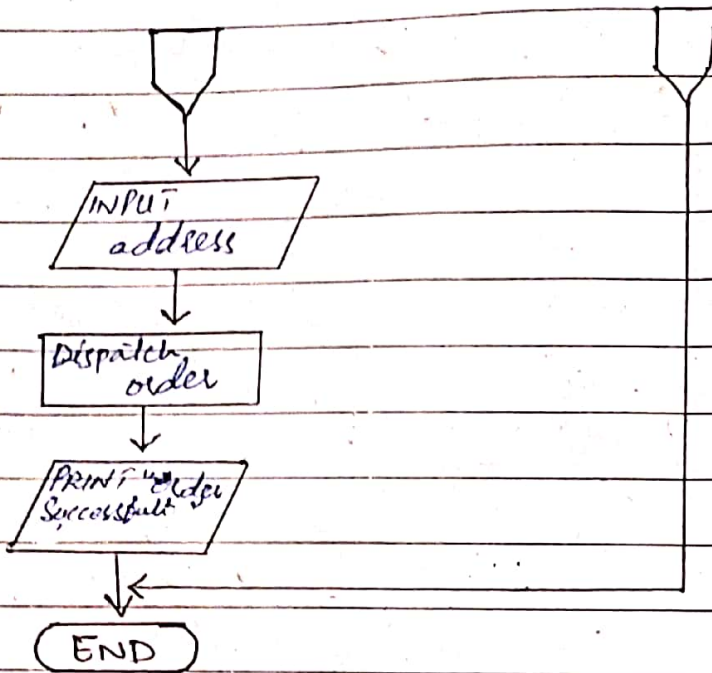 INPUT
address
Dispatch
order
PRINT "Order
Successful"
END